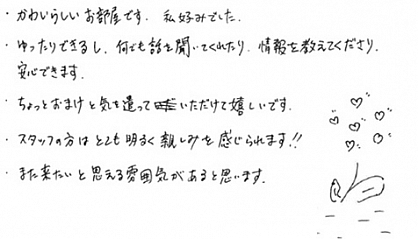 ・かわいらしいお部屋です。私好みでした。
・ゆったりできるし、何でも話を聞いてくれたり、情報を教えてくださり、
安心できます。
・ちょっとおまけと気を遣っていただけて嬉しいです。
・スタッフの方はとても明るく親しみを感じられます!!
・また来たいと思える雰囲気があると思います。